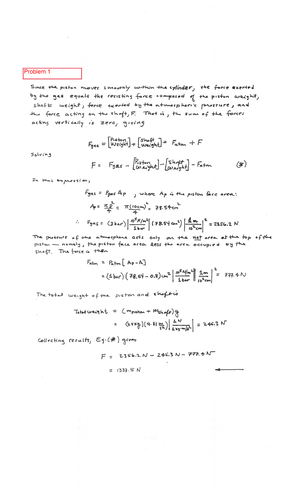 Problem 1
Since the piston moves smoothly within the cylinder, the force exerted
by the gas equals the resisting force composed of the piston weight,
shaft weight, force exerted by the atmospheric pressure, and
the force acting on the shaft, F. That is, the sum of the forces
acting vertically is zero, giving
Fgas = [Piston weight] + [Shaft weight] + Fatm + F
Solving
F = Fgas - [Piston weight] - [Shaft weight] - Fatm (*)
In this expression,
Fgas = Pgas Ap, where Ap is the piston face area:
Ap = πD²/4 = π(10cm)²/4 = 78.54cm²
∴ Fgas = (3bar) |10⁵N/m²/1bar| (78.54cm²) |1m/10²cm|² = 2356.2 N
The pressure of the atmosphere acts only on the net area at the top of the
piston — namely, the piston face area less the area occupied by the
shaft. The force is then
Fatm = Patm [Ap - A]
= (1bar) (78.54 - 0.8)cm² |10⁵N/m²/1bar| |1m/10²cm|² = 777.4 N
The total weight of the piston and shaft is
Total weight = (mpiston + mshaft)g
= (25kg)(9.81 m/s²) |1N/1kg·m/s²| = 245.3 N
Collecting results, Eq.(*) gives
F = 2356.2N - 245.3N - 777.4N
= 1333.5 N